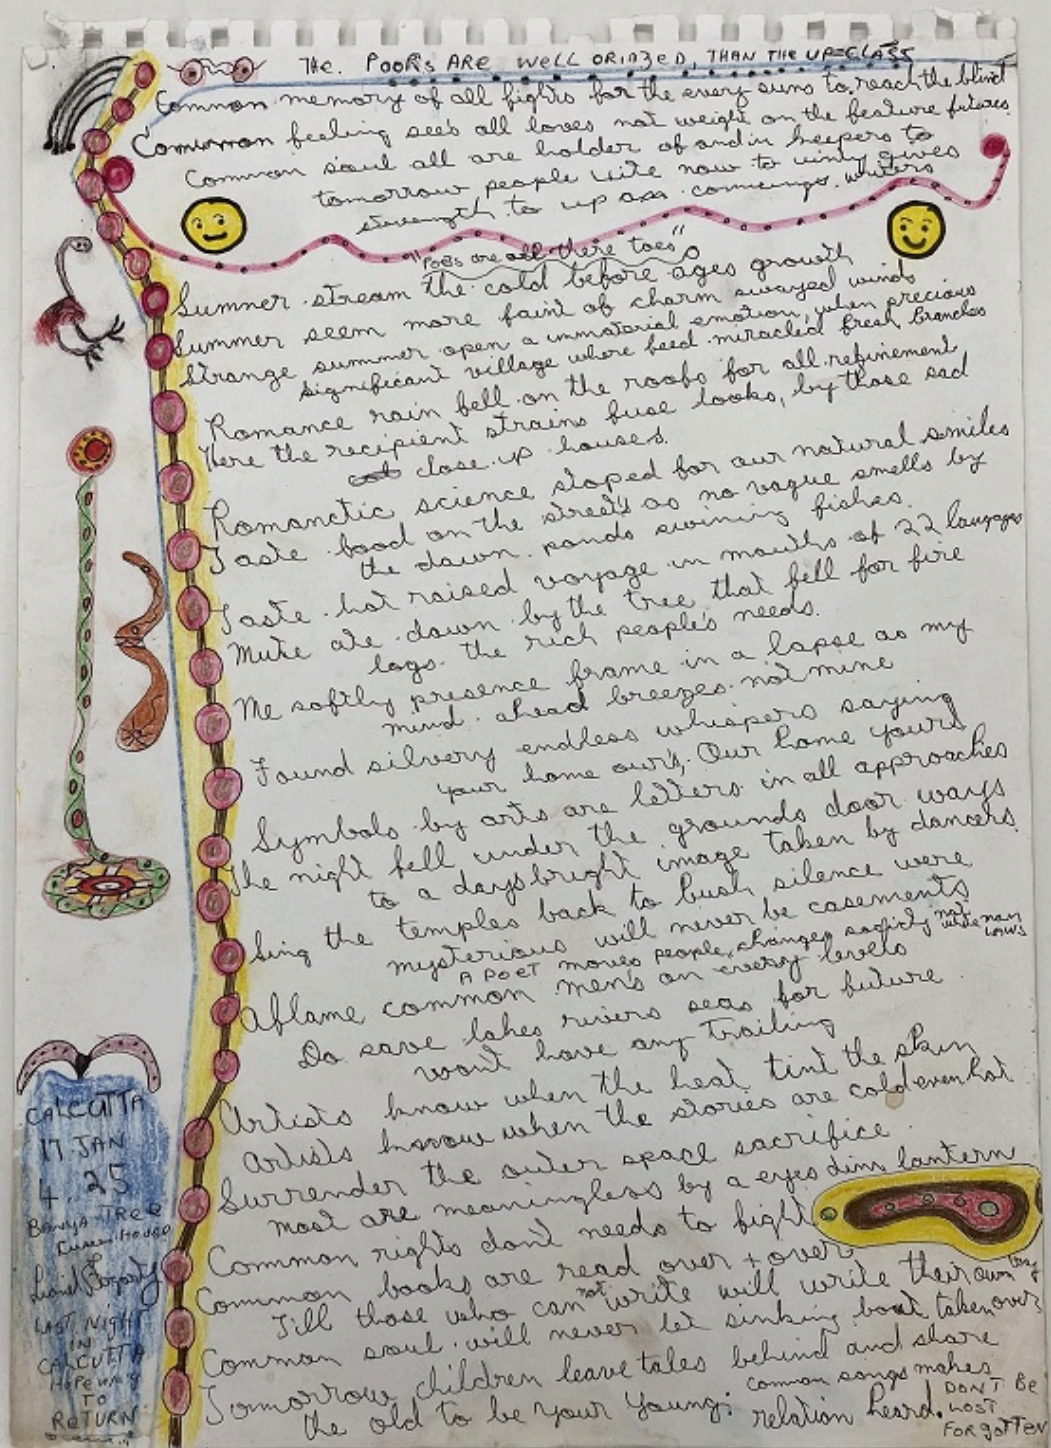 The. PooRs ARE WeLL ORIAZED, THAN THE UP=CLASS
Common memory of all fights for the every suns to reach the blind
Common feeling sees all loves not weight on the feature futures
Common soul all are holder of and in keepers to
tomorrow people write now to unity gives
strength to up ass comeings. writers
"PoEs are all there toes"
Summer stream the cold before ages growth
Summer seem more faint of charm swayed winds
Strange summer open a immaterial emotion, when precious
significant village where feed miracled fresh branches
Romance rain fell on the roofs for all refinement
Here the recipient strains fuse looks, by those sad
close up houses.
Romanctic science stoped for our natural smiles
Taste food on the streets as no vague smells by
the dawn ponds swining fishes.
Taste hot raised voyage in mouths of 22 langages
Mute ate down by the tree that fell for fire
logs the rich people's needs.
Me softly presence frame in a lapse as my
mind ahead breezes not mine
Found silvery endless whispers saying
your home ours, Our home yours
Symbols by arts are letters in all approaches
The night fell under the grounds door ways
to a days bright image taken by dancers
Sing the temples back to bush silence were
mysterious will never be casements
A POET moves people, changes society not write nam LAWS
Aflame common men's on every levels
Do save lakes rivers seas for future
wont have any trailing
Artists know when the heat tint the skin
Artists know when the stories are cold even hot
Surrender the outer space sacrifice.
most are meaningless by a eyes dim lantern
Common rights don't needs to fight
Common books are read over + over
Till those who can not write will write their own
Common soul will never let sinking boat taken over
Tomorrow children leave tales behind and share
the old to be your young; common songs makes
relation heard.
DONT Be
LOST
FORgOTTEN
CALCUTTA
17 JAN
4. 25
BANYA TREE
LAST NIGHT
IN
CALCUTTA
TO
RETURN